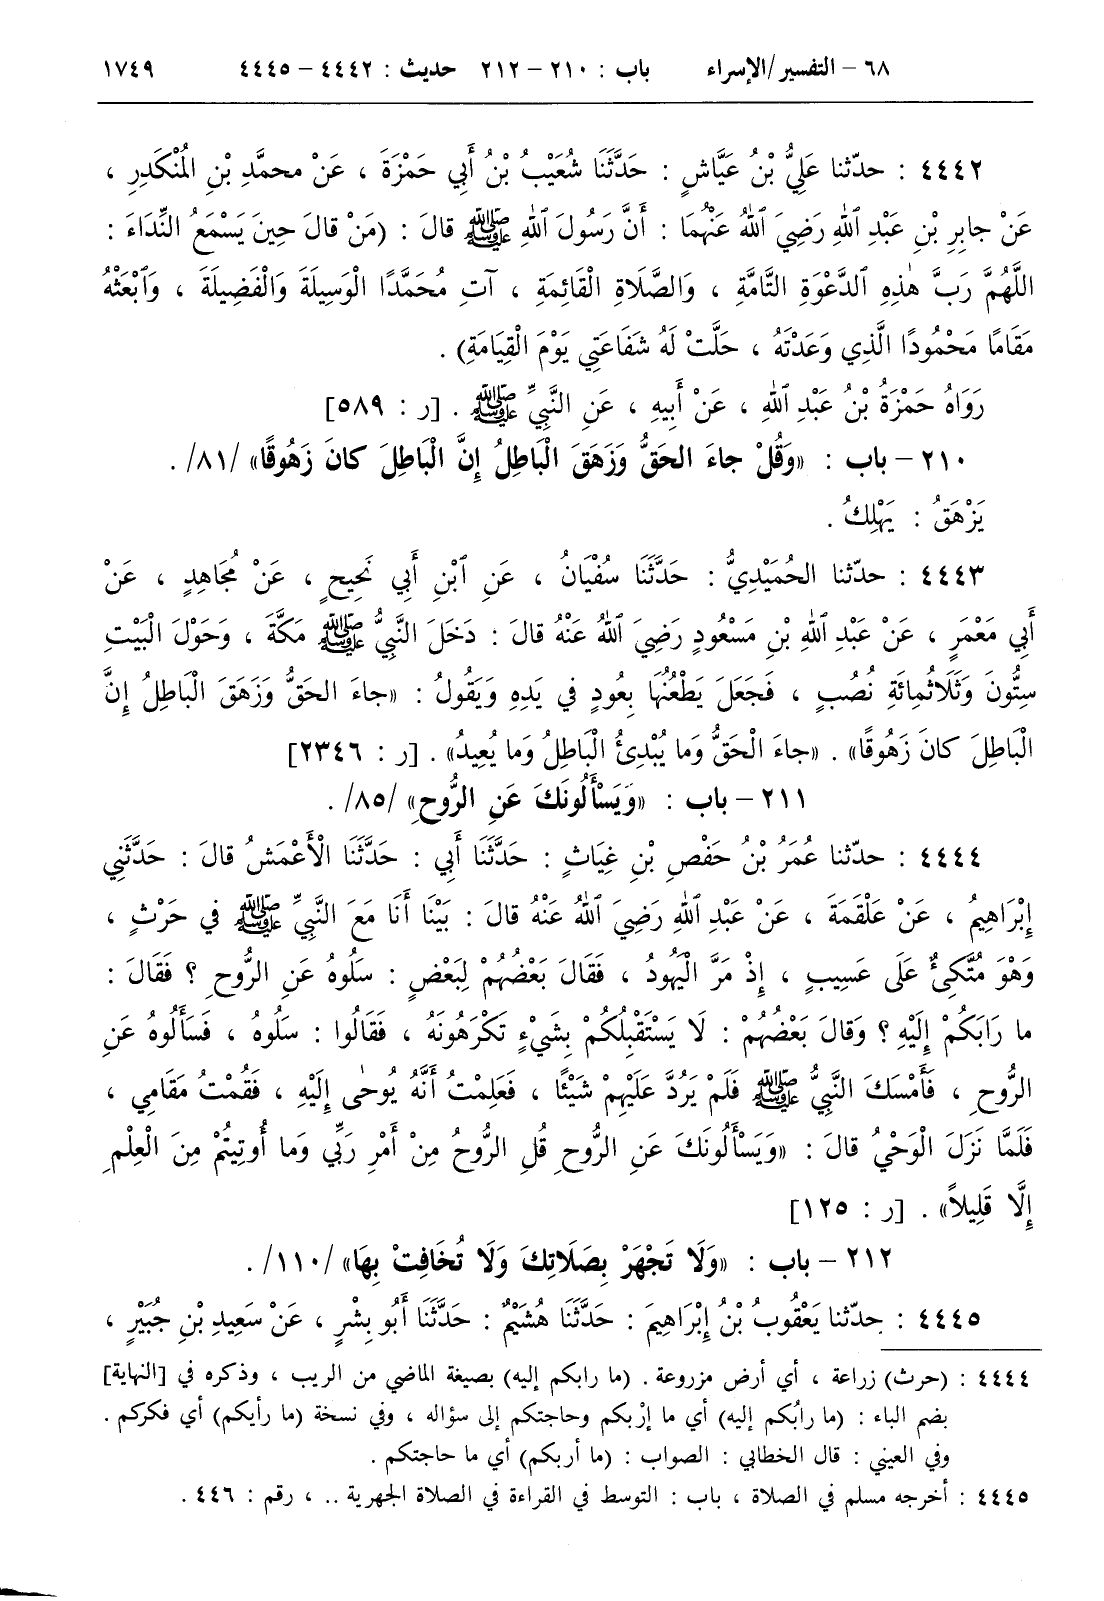 ٦٨ – التفسير/الإسراء باب : ٢١٠ – ٢١٢ حديث : ٤٤٤٢ – ٤٤٤٥ ١٧٤٩
٤٤٤٢ : حدّثنا عَلِيُّ بْنُ عَيَّاشٍ : حَدَّثَنَا شُعَيْبُ بْنُ أَبِي حَمْزَةَ ، عَنْ محمَّدِ بْنِ المُنْكَدِرِ ،
عَنْ جابِرِ بْنِ عَبْدِ ٱللهِ رَضِيَ ٱللهُ عَنْهُمَا : أَنَّ رَسُولَ ٱللهِ ﷺ قالَ : (مَنْ قالَ حِينَ يَسْمَعُ النِّدَاءَ :
اللَّهُمَّ رَبَّ هٰذِهِ ٱلدَّعْوَةِ التَّامَّةِ ، وَالصَّلَاةِ الْقَائِمَةِ ، آتِ مُحَمَّدًا الْوَسِيلَةَ وَالْفَضِيلَةَ ، وَٱبْعَثْهُ
مَقَامًا مَحْمُودًا الَّذِي وَعَدْتَهُ ، حَلَّتْ لَهُ شَفَاعَتِي يَوْمَ الْقِيَامَةِ) .
رَوَاهُ حَمْزَةُ بْنُ عَبْدِ ٱللهِ ، عَنْ أَبِيهِ ، عَنِ النَّبِيِّ ﷺ . [ر : ٥٨٩]
٢١٠ – باب : «وَقُلْ جاءَ الحَقُّ وَزَهَقَ الْبَاطِلُ إِنَّ الْبَاطِلَ كانَ زَهُوقًا» /٨١/ .
يَزْهَقُ : يَهْلِكُ .
٤٤٤٣ : حدّثنا الحُمَيْدِيُّ : حَدَّثَنَا سُفْيَانُ ، عَنِ ٱبْنِ أَبِي نَجِيحٍ ، عَنْ مُجَاهِدٍ ، عَنْ
أَبِي مَعْمَرٍ ، عَنْ عَبْدِ ٱللهِ بْنِ مَسْعُودٍ رَضِيَ ٱللهُ عَنْهُ قالَ : دَخَلَ النَّبِيُّ ﷺ مَكَّةَ ، وَحَوْلَ الْبَيْتِ
سِتُّونَ وَثَلَاثُمِائَةِ نُصُبٍ ، فَجَعَلَ يَطْعُنُهَا بِعُودٍ في يَدِهِ وَيَقُولُ : «جاءَ الحَقُّ وَزَهَقَ الْبَاطِلُ إِنَّ
الْبَاطِلَ كانَ زَهُوقًا» . «جاءَ الْحَقُّ وَما يُبْدِئُ الْبَاطِلُ وَما يُعِيدُ» . [ر : ٢٣٤٦]
٢١١ – باب : «وَيَسْأَلُونَكَ عَنِ الرُّوحِ» /٨٥/ .
٤٤٤٤ : حدّثنا عُمَرُ بْنُ حَفْصِ بْنِ غِيَاثٍ : حَدَّثَنَا أَبِي : حَدَّثَنَا الْأَعْمَشُ قالَ : حَدَّثَنِي
إِبْرَاهِيمُ ، عَنْ عَلْقَمَةَ ، عَنْ عَبْدِ ٱللهِ رَضِيَ ٱللهُ عَنْهُ قالَ : بَيْنَا أَنَا مَعَ النَّبِيِّ ﷺ في حَرْثٍ ،
وَهْوَ مُتَّكِئٌ عَلَى عَسِيبٍ ، إِذْ مَرَّ الْيَهُودُ ، فَقَالَ بَعْضُهُمْ لِبَعْضٍ : سَلُوهُ عَنِ الرُّوحِ ؟ فَقَالَ :
ما رَابَكُمْ إِلَيْهِ ؟ وَقالَ بَعْضُهُمْ : لَا يَسْتَقْبِلُكُمْ بِشَيْءٍ تَكْرَهُونَهُ ، فَقَالُوا : سَلُوهُ ، فَسَأَلُوهُ عَنِ
الرُّوحِ ، فَأَمْسَكَ النَّبِيُّ ﷺ فَلَمْ يَرُدَّ عَلَيْهِمْ شَيْئًا ، فَعَلِمْتُ أَنَّهُ يُوحٰى إِلَيْهِ ، فَقُمْتُ مَقَامِي ،
فَلَمَّا نَزَلَ الْوَحْيُ قالَ : «وَيَسْأَلُونَكَ عَنِ الرُّوحِ قُلِ الرُّوحُ مِنْ أَمْرِ رَبِّي وَما أُوتِيتُمْ مِنَ الْعِلْمِ
إِلَّا قَلِيلاً» . [ر : ١٢٥]
٢١٢ – باب : «وَلَا تَجْهَرْ بِصَلَاتِكَ وَلَا تُخَافِتْ بِهَا» /١١٠/ .
٤٤٤٥ : حدّثنا يَعْقُوبُ بْنُ إِبْرَاهِيمَ : حَدَّثَنَا هُشَيْمٌ : حَدَّثَنَا أَبُو بِشْرٍ ، عَنْ سَعِيدِ بْنِ جُبَيْرٍ ،
٤٤٤٤ : (حرث) زراعة ، أي أرض مزروعة . (ما رابكم إليه) بصيغة الماضي من الريب ، وذكره في [النهاية]
بضم الباء : (ما رابُكم إليه) أي ما إرْبكم وحاجتكم إلى سؤاله ، وفي نسخة (ما رأيكم) أي فكركم .
وفي العيني : قال الخطابي : الصواب : (ما أربكم) أي ما حاجتكم .
٤٤٤٥ : أخرجه مسلم في الصلاة ، باب : التوسط في القراءة في الصلاة الجهرية .. ، رقم : ٤٤٦ .